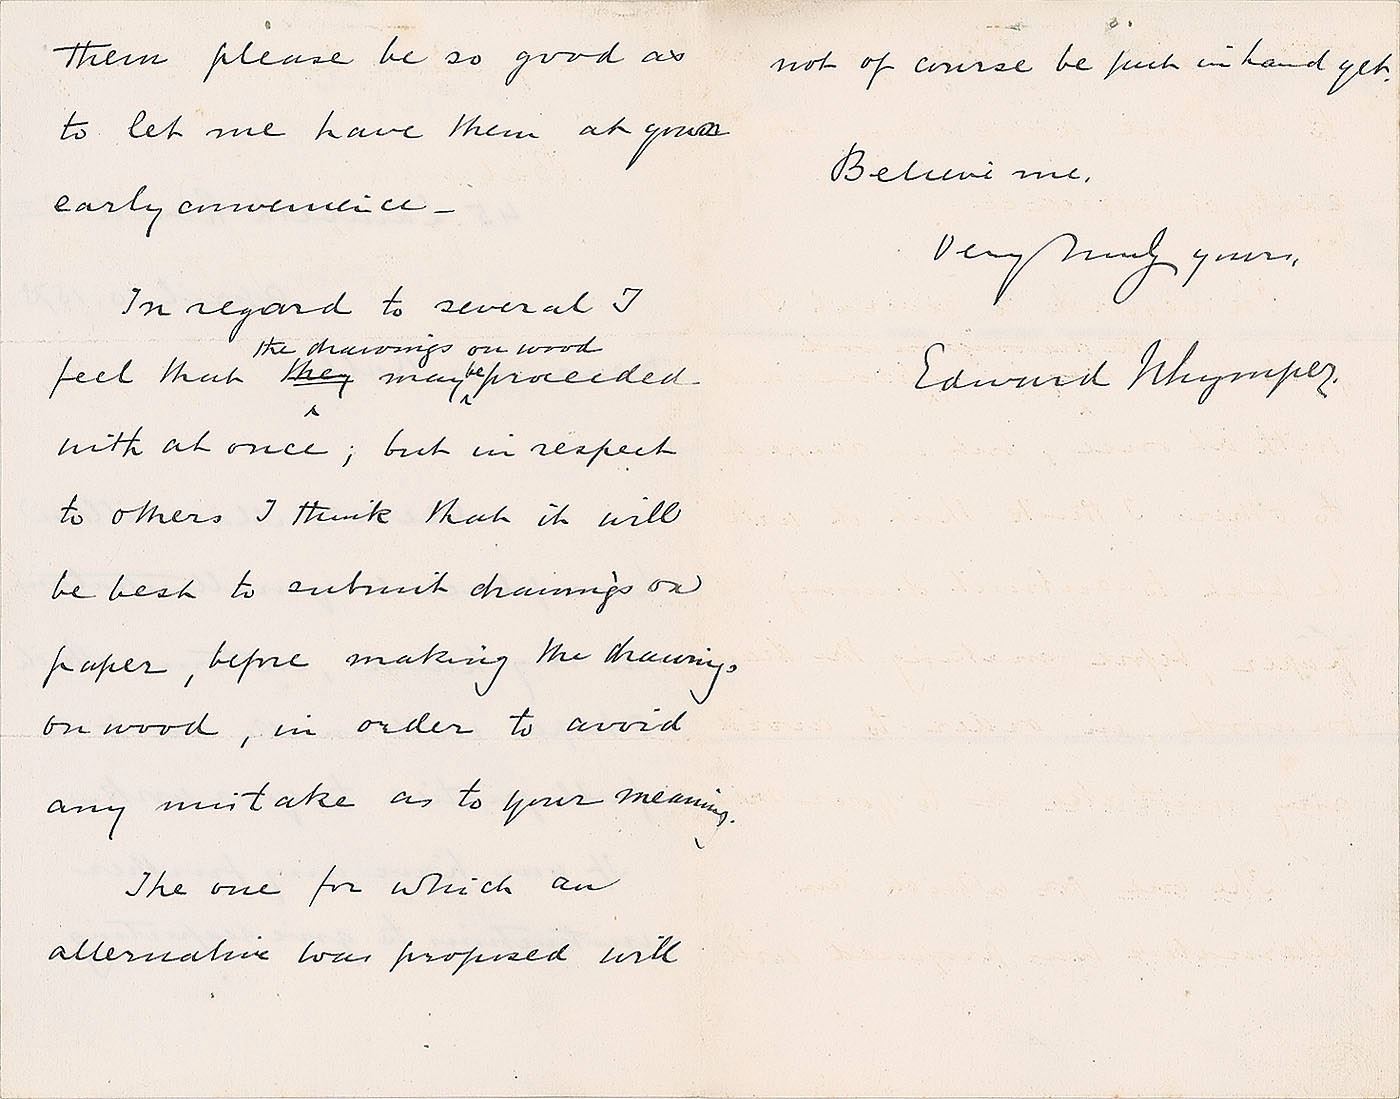 them please be so good as
to let me have them at your
early convenience_
In regard to several I
the drawings on wood
feel that they may be proceeded
with at once; but in respect
to others I think that it will
be best to submit drawings on
paper, before making the drawings
on wood, in order to avoid
any mistake as to your meaning.
The one for which an
alternative was proposed will
not of course be put in hand yet.
Believe me,
Very truly yours,
Edward Whymper.